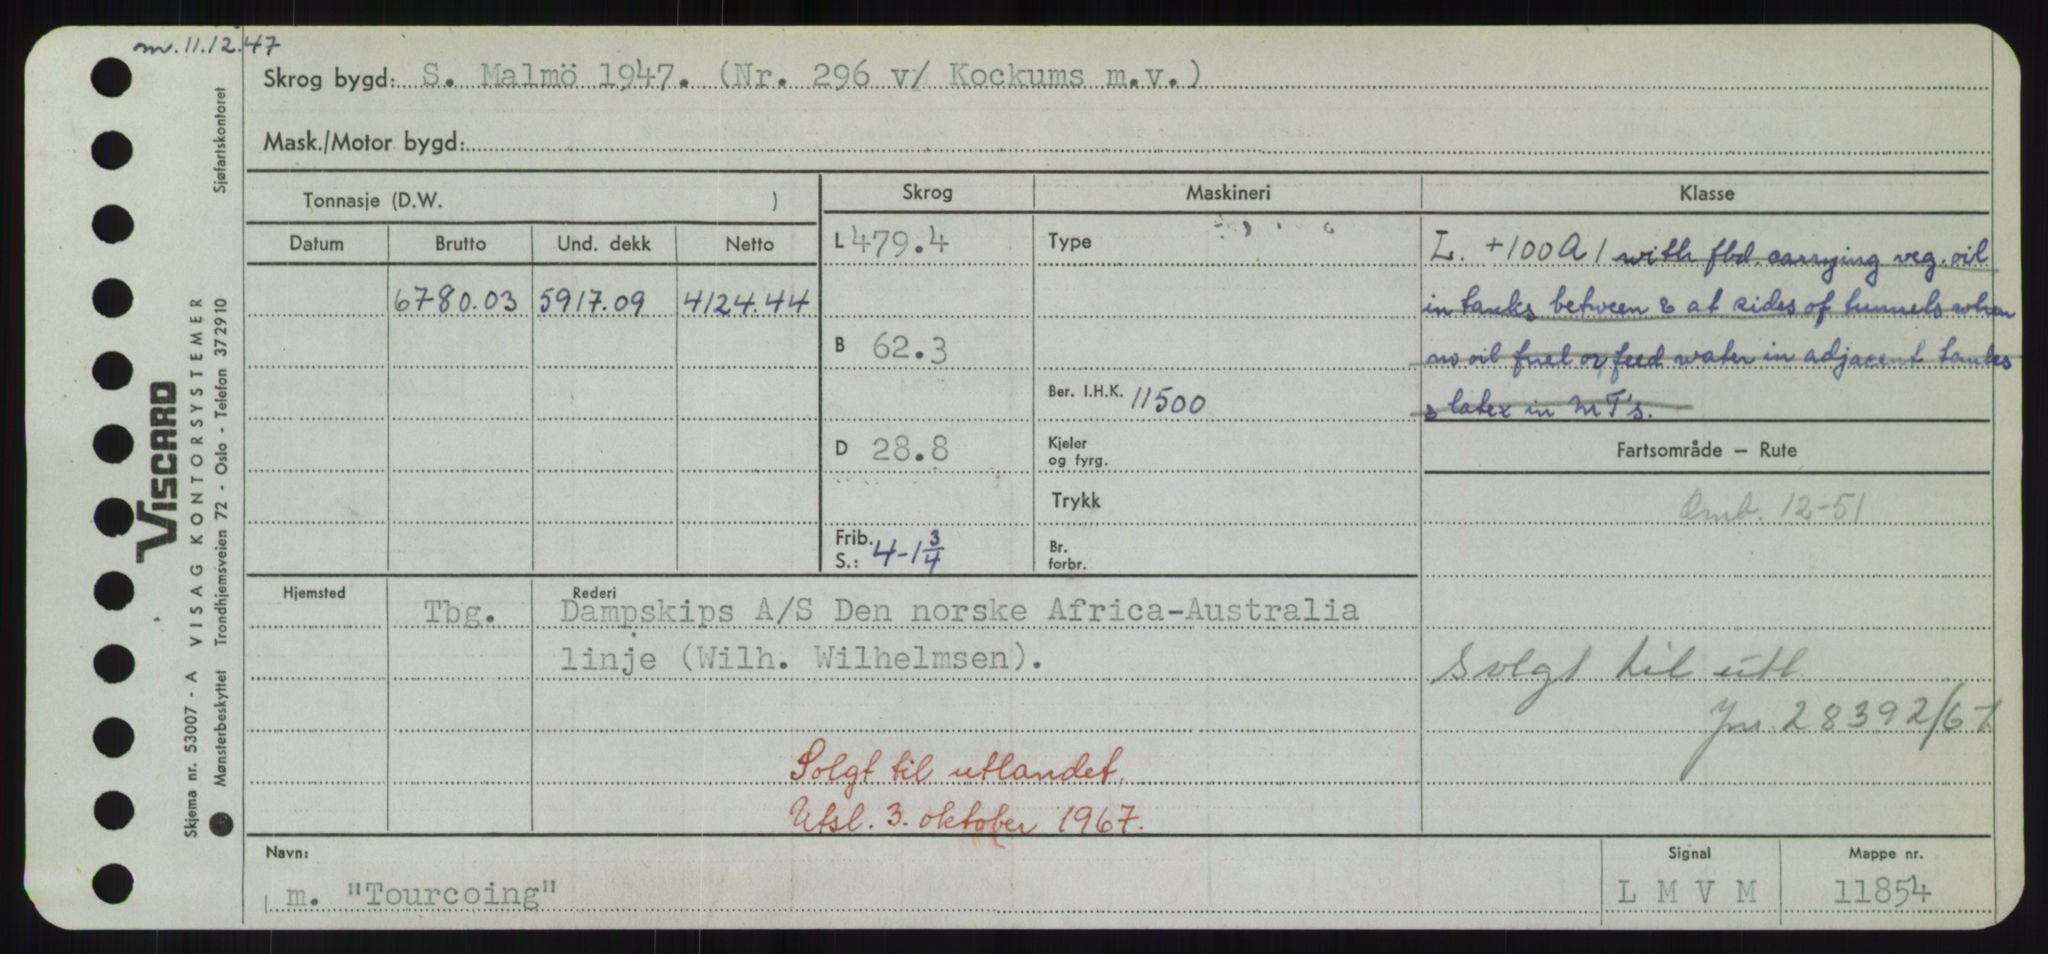 m. 11.12.47
Skrog bygd: S. Malmö 1947. (Nr. 296 v/ Kockums m.v.)
Mask./Motor bygd:
Tonnasje (D.W. )
Skrog
Maskineri
Klasse
Datum Brutto Und. dekk Netto
6780.03 5917.09 4124.44
L 479.4
B 62.3
D 28.8
Frib. S.: 4-1 3/4
Type
Ber. I.H.K. 11500
Kjeler
og fyrg.
Trykk
Br.
forbr.
L. +100A1 with fbd. carrying veg. oil
in tanks between & at sides of tunnels when
no oil fuel or feed water in adjacent tanks
& latex in MT's.
Fartsområde – Rute
Omb. 12-51
Solgt til utl.
Jnr. 28392/67
Hjemsted Tbg.
Rederi
Dampskips A/S Den norske Africa-Australia
linje (Wilh. Wilhelmsen).
Solgt til utlandet.
Utsl. 3. oktober 1967.
Navn:
m. "Tourcoing"
Signal
L M V M
Mappe nr.
11854
VISCARD
Skjema nr. 53007 - A VISAG KONTORSYSTEMER
Mønsterbeskyttet Trondhjemsveien 72 - Oslo - Telefon 372910 Sjøfartskontoret